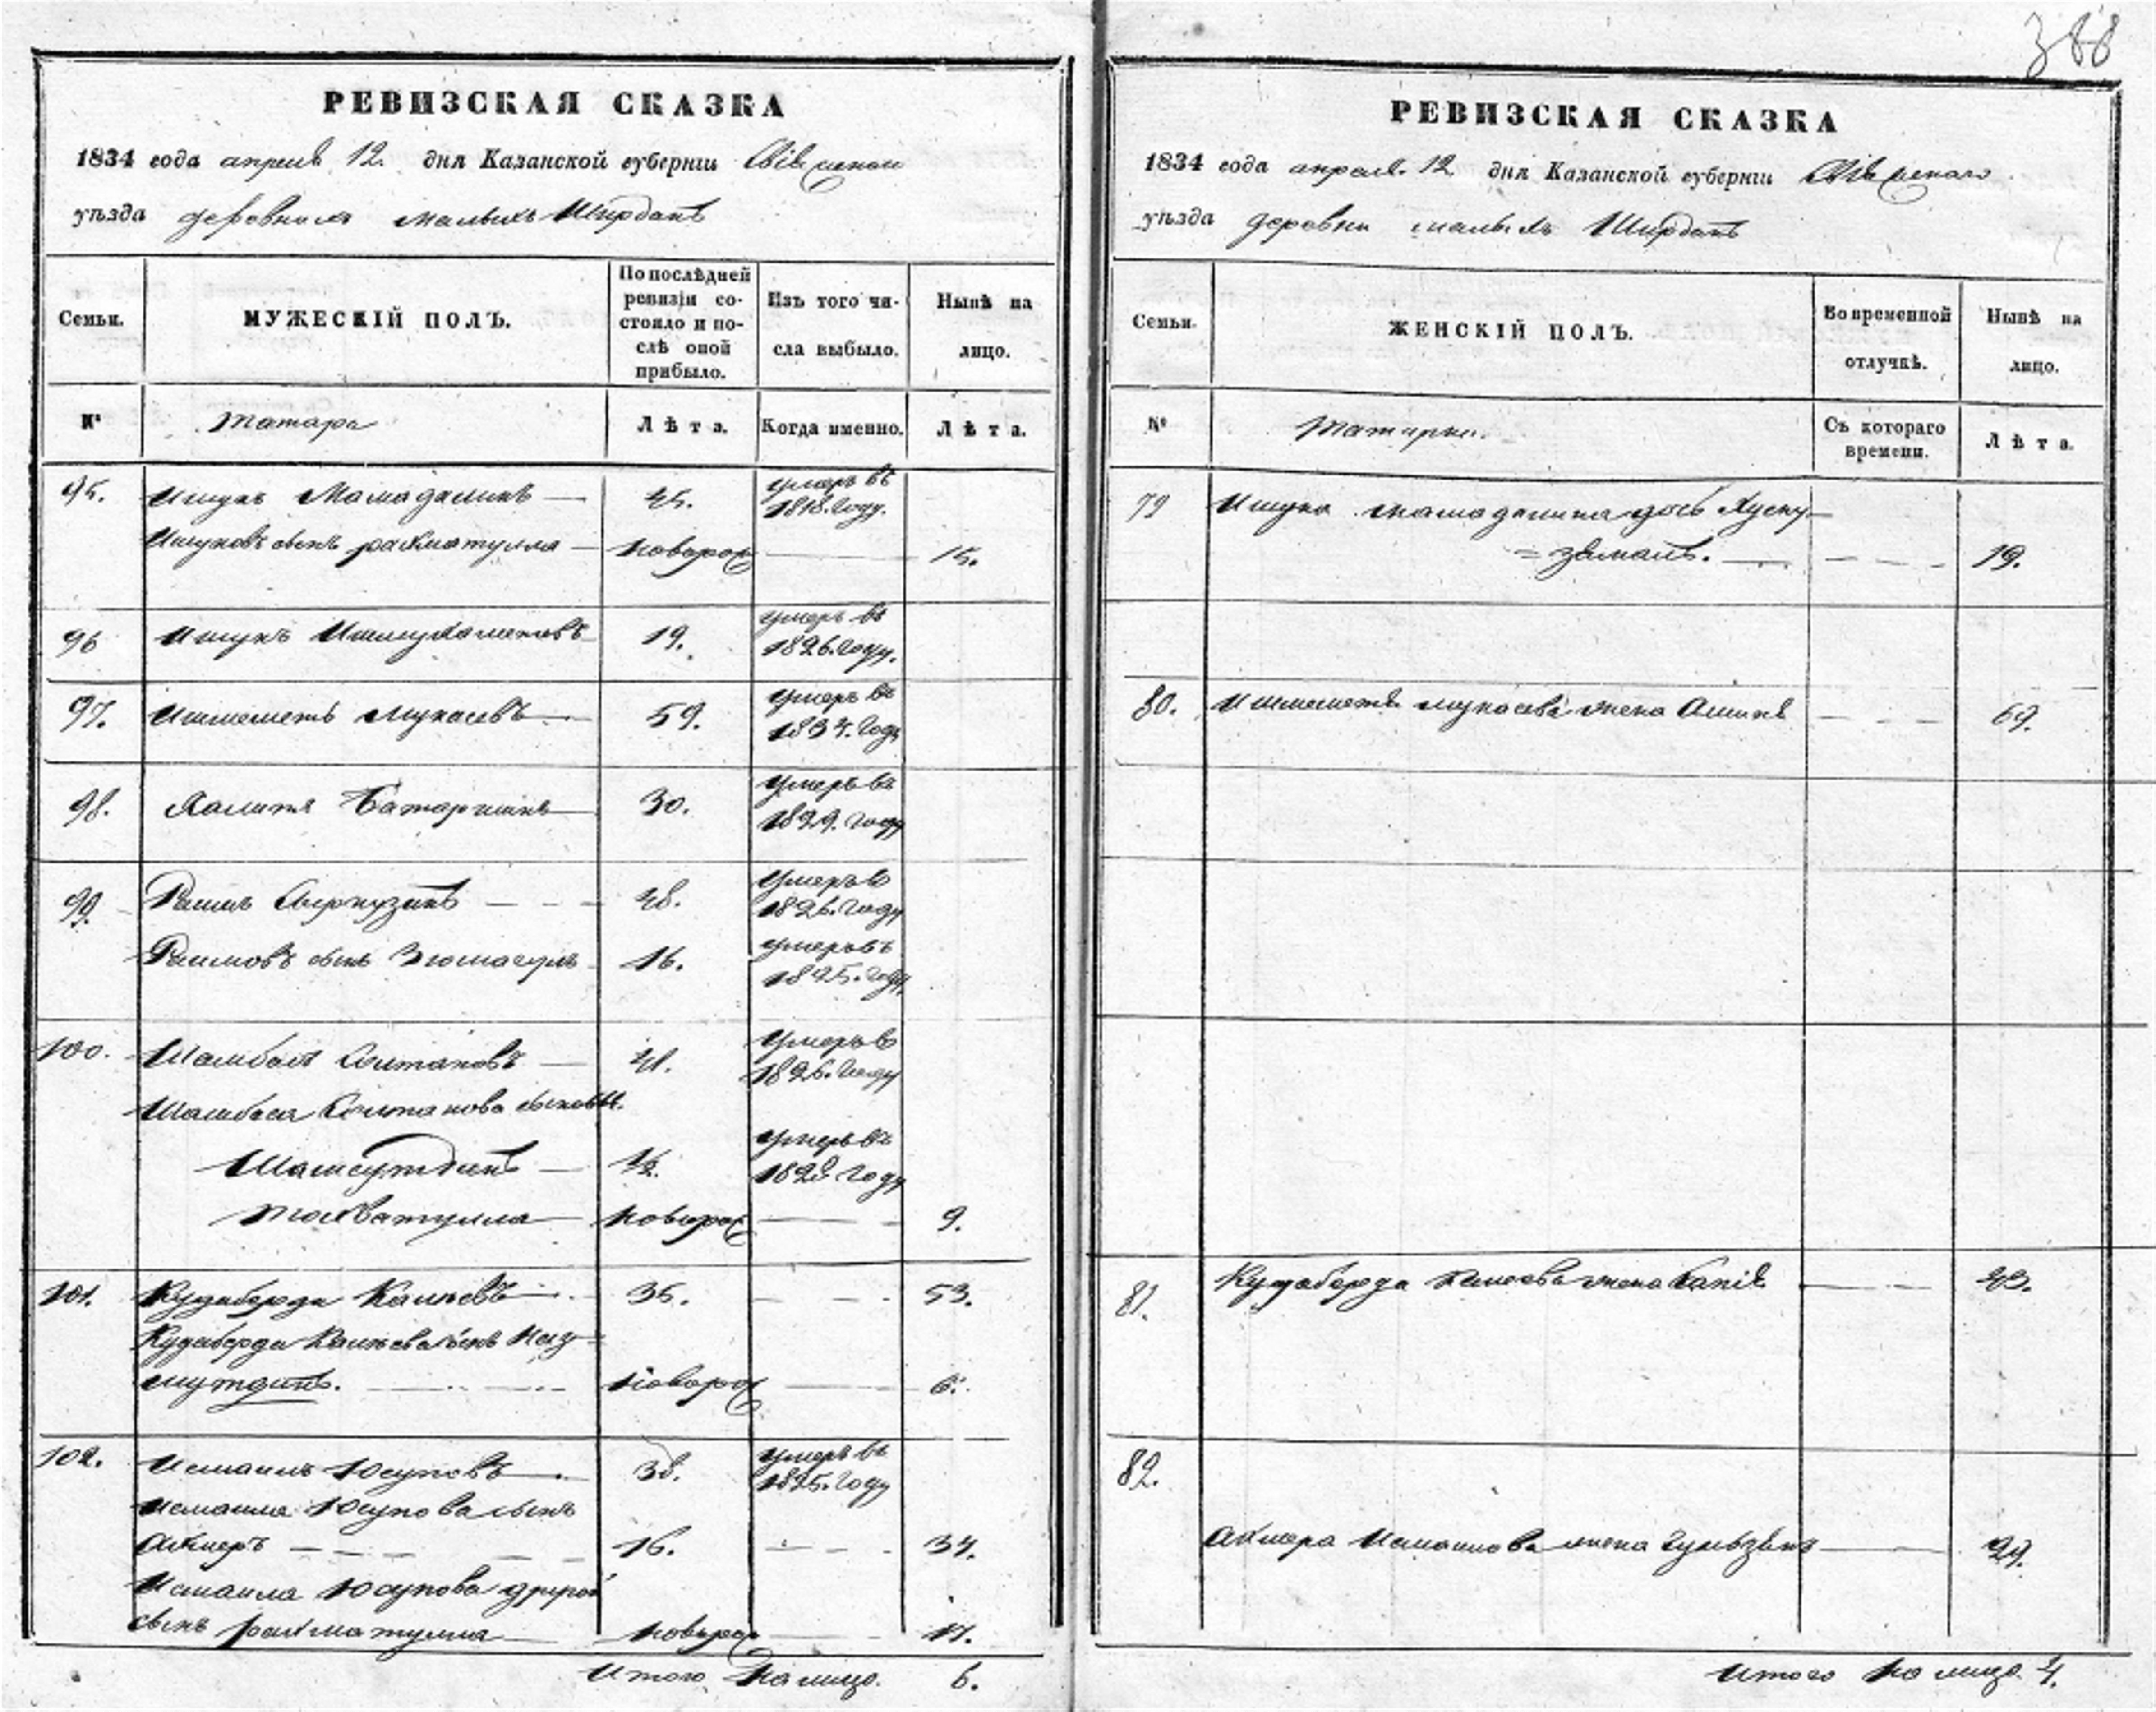 388
РЕВИЗСКАЯ СКАЗКА
1834 года апреля 12. дня Казанской губернiи
уѣзда деревни малыхъ Ширданъ
Семьи.
МУЖЕСКІЙ ПОЛЪ.
По послѣдней
ревизiи со-
стояло и по-
слѣ оной
прибыло.
Изъ того чи-
сла выбыло.
Нынѣ на
лицо.
№
татара
Лѣта.
Когда именно.
Лѣта.
95. Ишукъ Мамаделинъ 45. умеръ въ
1818. году.
Ишуковъ сынъ рахматулла новорож 15.
96 Ишукъ Ишмухаметевъ 19. умеръ въ
1826. году.
97. Ишмеметь Мукаевъ 59. умеръ въ
1834. году
98. Халитъ Батаршинъ 30. умеръ въ
1829. году
99. Раимъ 48. умеръ въ
1826. году
Раимовъ сынъ Зюмагулъ 16. умеръ въ
1825. году.
100. Шамбай Солтановъ 41. умеръ въ
1826. году
Шамбая Солтанова сыновья.
Шамсутдинъ ½. умеръ въ
1828 году
новорож 9.
101. Кудабердa Каипевъ 35. 53.
Кудабердa сынъ Низ-
мутдинъ. новорож 6.
102. Исмаилъ Юсуповъ 38. умеръ въ
1825. году
Исмаила Юсупова сынъ
Ахмеръ 16. 34.
Исмаила Юсупова другой
сынъ рахматулла новорож 17.
Итого на лицо. 6.
РЕВИЗСКАЯ СКАЗКА
1834 года апреля. 12 дня Казанской губернiи
уѣзда деревни малыхъ Ширданъ
Семьи.
ЖЕНСКІЙ ПОЛЪ.
Во временной
отлучкѣ.
Нынѣ на
лицо.
№
татарки.
Съ котораго
времени.
Лѣта.
79 Ишука мамаделина дочь Хусну-
=замалъ. 19.
80. Ишмеметя мукаева жена 69.
81. Кудабердa жена 43.
82.
Ахмера Исмаилова жена 29.
Итого на лицо. 4.